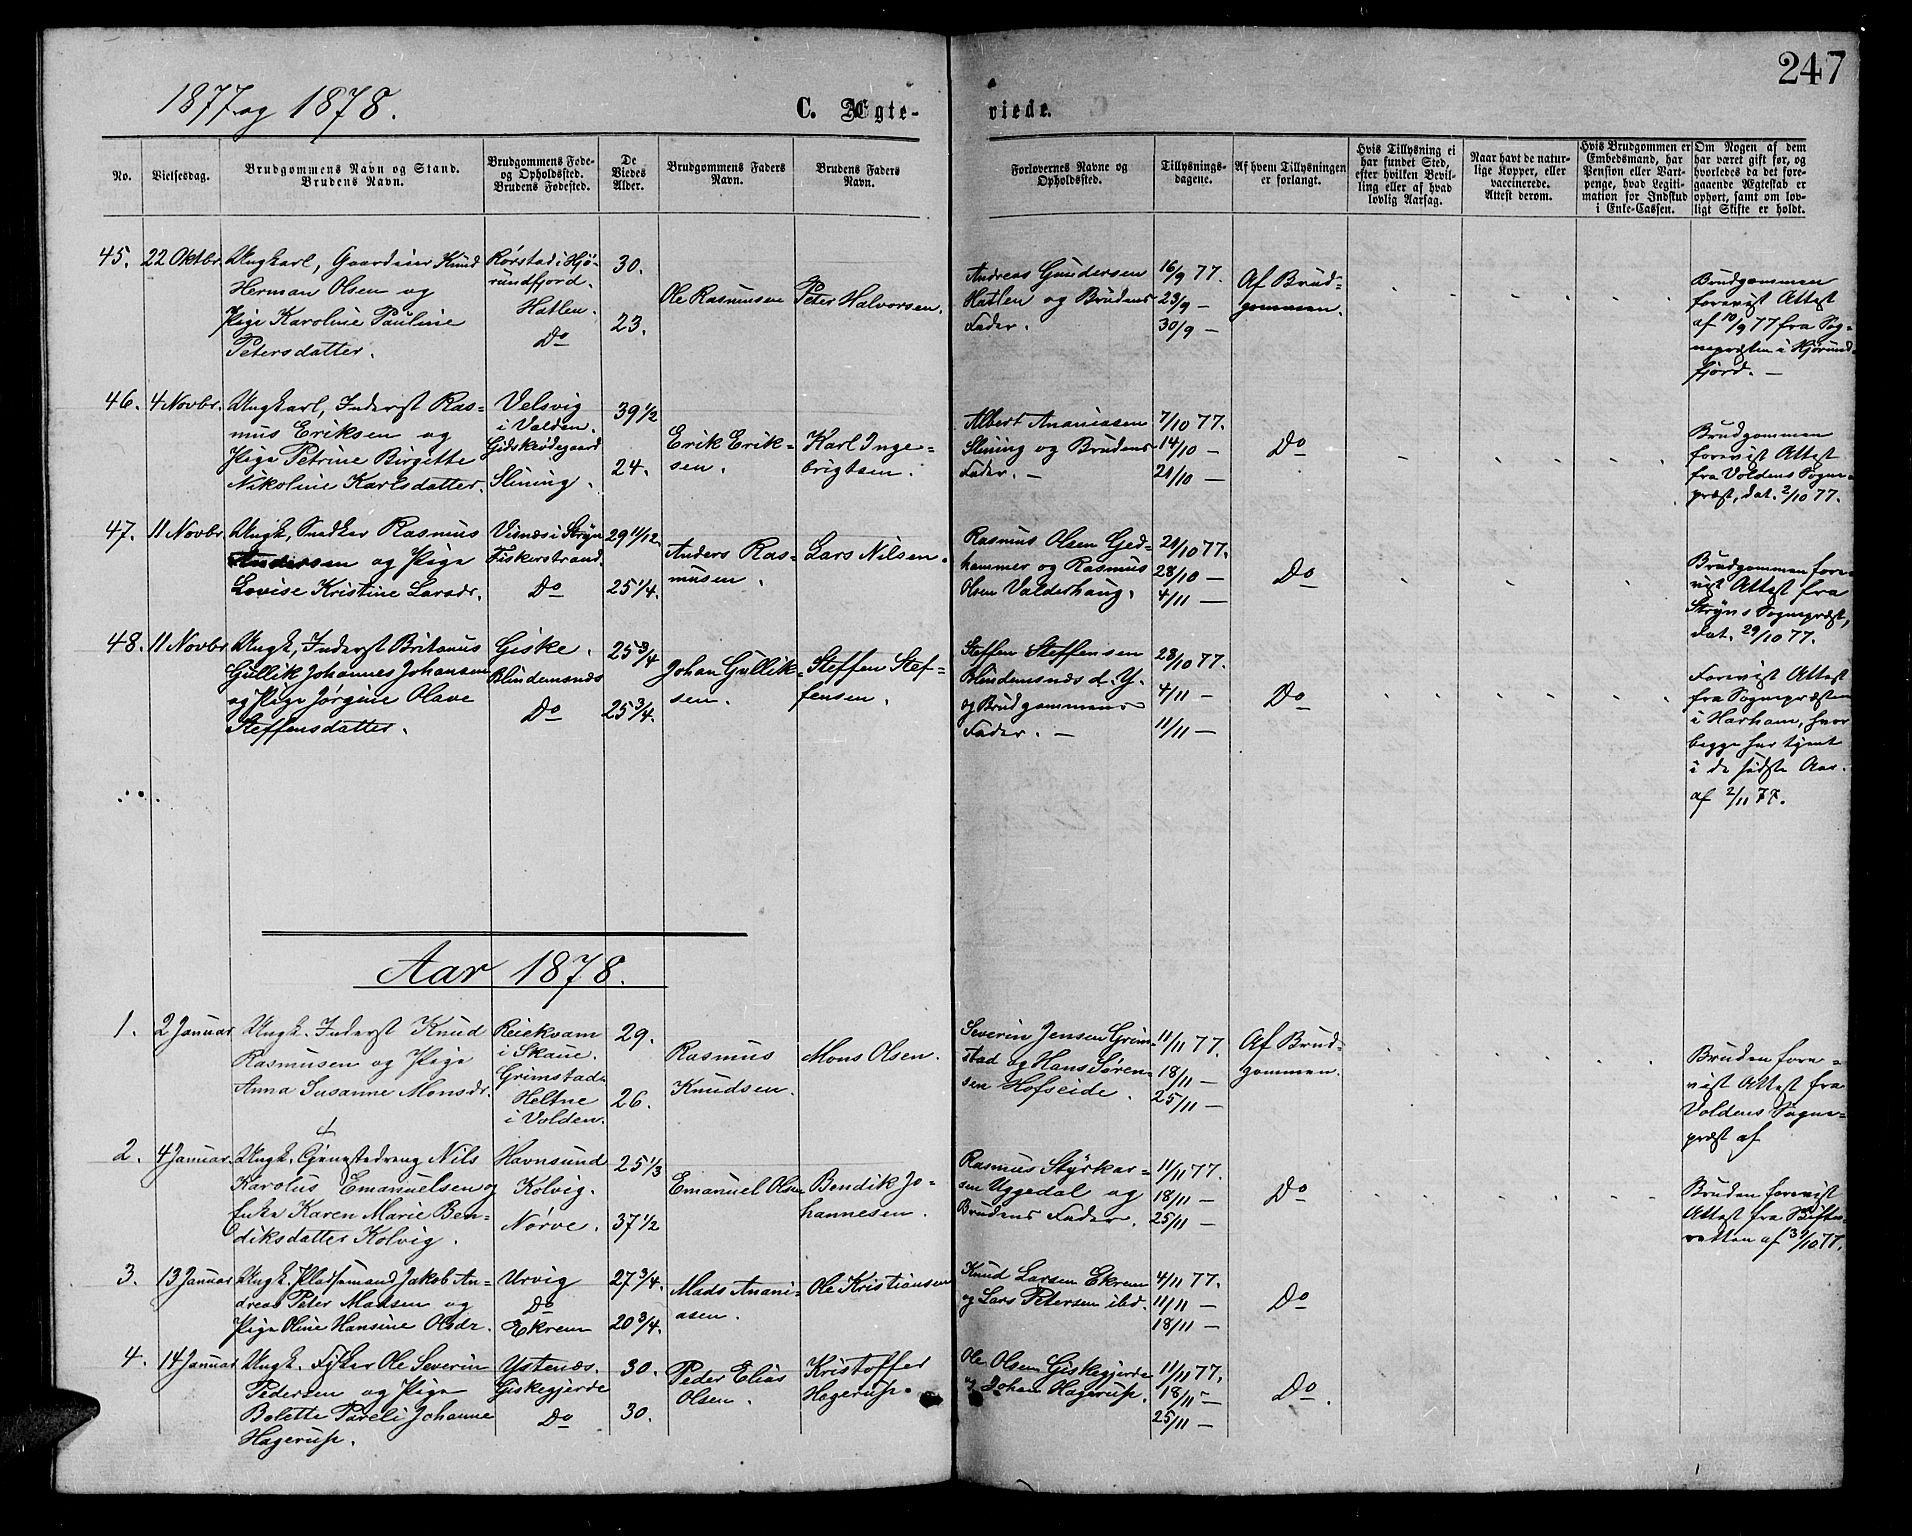 247
1877 og 1878.
C. Ægteviede.
No.
Vielsesdag.
Brudgommens Navn og Stand.
Brudens Navn.
Brudgommens Føde-
og Opholdssted.
Brudens Fødested.
De
Viedes
Alder.
Brudgommens Faders
Navn.
Brudens Faders
Navn.
Forlovernes Navne og
Opholdssted.
Tillysnings-
dagene.
Af hvem Tillysningen
er forlangt.
Hvis Tillysning ei
har fundet Sted,
efter hvilken Bevil-
ling eller af hvad
lovlig Aarsag.
Naar havt de natur-
lige Kopper, eller
vaccinerede.
Attest derom.
Hvis Brudgommen er
Embedsmand, har
Pension eller Vart-
penge, hvad Legiti-
mation for Indskud
i Enke-Cassen.
Om Nogen af dem
har været gift før, og
hvorledes da det fore-
gaaende Ægteskab er
ophørt, samt om lov-
ligt Skifte er holdt.
45. 22 Oktbr.
Ungkarl, Gaardeier Knud
Herman Olsen og
Pige Karoline Pauline
Petersdatter.
Rørstad i Hjø-
rundfjord.
Hatlen.
Do
30.
23.
Ole Rasmussen
Peter Halvorsen.
Andreas Gundersen
Hatlen og Brudens
Fader.
16/9 77.
23/9 —
30/9 —
Af Brud-
gommen.
Brudgommen
forevist Attest
af 10/9 77 fra Sog-
nepræsten i Hjørund-
fjord. —
46. 4 Novbr.
Ungkarl, Inderst Ras-
mus Eriksen og
Pige Petrine Birgitte
Nikoline Karlsdatter.
Velsvig
i Volden.
Gidskeødegaard
Slining.
39 1/2
24.
Erik Erik-
sen.
Karl Inge-
brigtsen.
Albert Ananiasen
Slining og Brudens
Fader. —
7/10 77.
14/10 —
21/10 —
Do
Brudgommen
forevist Attest
fra Voldens Sogne-
præst, dat. 2/10 77.
47. 11 Novbr.
Ungk, Snedker Rasmus
Andersen og Pige
Lovise Kristine Larsdr.
Visnæs i Stryn
Fiskerstrand.
Do
29 11/12.
25 1/4.
Anders Ras-
musen.
Lars Nilsen.
Rasmus Olsen Ged-
hammer og Rasmus
Olsen Valderhaug.
21/10 77.
28/10 —
4/11 —
Do
Brudgommen fore-
vist Attest fra
Stryns Sognepræst,
dat. 29/10 77.
48. 11 Novbr.
Ungk, Inderst Britanus
Gullik Johannes Johansen
og Pige Jørgine Olave
Steffensdatter.
Giske.
Blindemsnæs
Do
25 3/4
25 3/4.
Johan Gullik-
sen.
Steffen Stef-
fensen.
Steffen Steffensen
Blindemsnæs d. Y.
og Brudgommens
Fader. —
28/10 77.
4/11 —
11/11 —
Do
Forevist Attest
fra Sognepræsten
i Harham, hvor
begge har tjent
i de sidste Aar.
af 2/11 77.
Aar 1878.
1. 2 Januar.
Ungk. Inderst Knud
Rasmusen og Pige
Anna Susanne Monsdr.
Reiekvam
i Skaue.
Grimstad
Heltne
i Volden.
29.
26.
Rasmus
Knudsen.
Mons Olsen.
Severin Jensen Grim-
stad og Hans Søren-
sen Hofseide.
11/11 77.
18/11 —
25/11 —
Af Brud-
gommen.
Bruden fore-
vist Attest fra
Voldens Sogne-
præst af
2. 4 Januar.
Ungk. Tjenestedreng Nils
Karolus Emanuelsen og
Enke Karen Marie Ben-
diksdatter Kolvig.
Havnsund
Kolvig.
Nørve.
25 1/3
37 1/2
Emanuel Olsen
Bendik Jo-
hannesen.
Rasmus Styrkar-
sen Uggedal og
Brudens Fader.
11/11 77.
18/11 —
25/11 —
Do
Bruden forevist
Attest fra Skifte-
retten af 31/10 77.
3. 13 Januar
Ungk. Pladsemand Jakob An-
dreas Peter Madsen og
Pige Oline Hansine Olsdr.
Urvig
Do
Ekrem
27 3/4.
20 3/4.
Mads Anani-
asen.
Ole Kristiansen
Knud Larsen Ekrem
og Lars Petersen ibd.
4/11 77.
11/11 —
18/11 —
Do
4. 14 Januar
Ungk. Fisker Ole Severin
Pedersen og Pige
Bolette Pareli Johanne
Hagerup.
Ystenæs.
Giskegjerde
Do
30.
30.
Peder Elias
Olsen.
Kristoffer
Hagerup.
Ole Olsen Giskegjerde
og Johan Hagerup.
11/11 77.
18/11 —
25/11 —
Do.